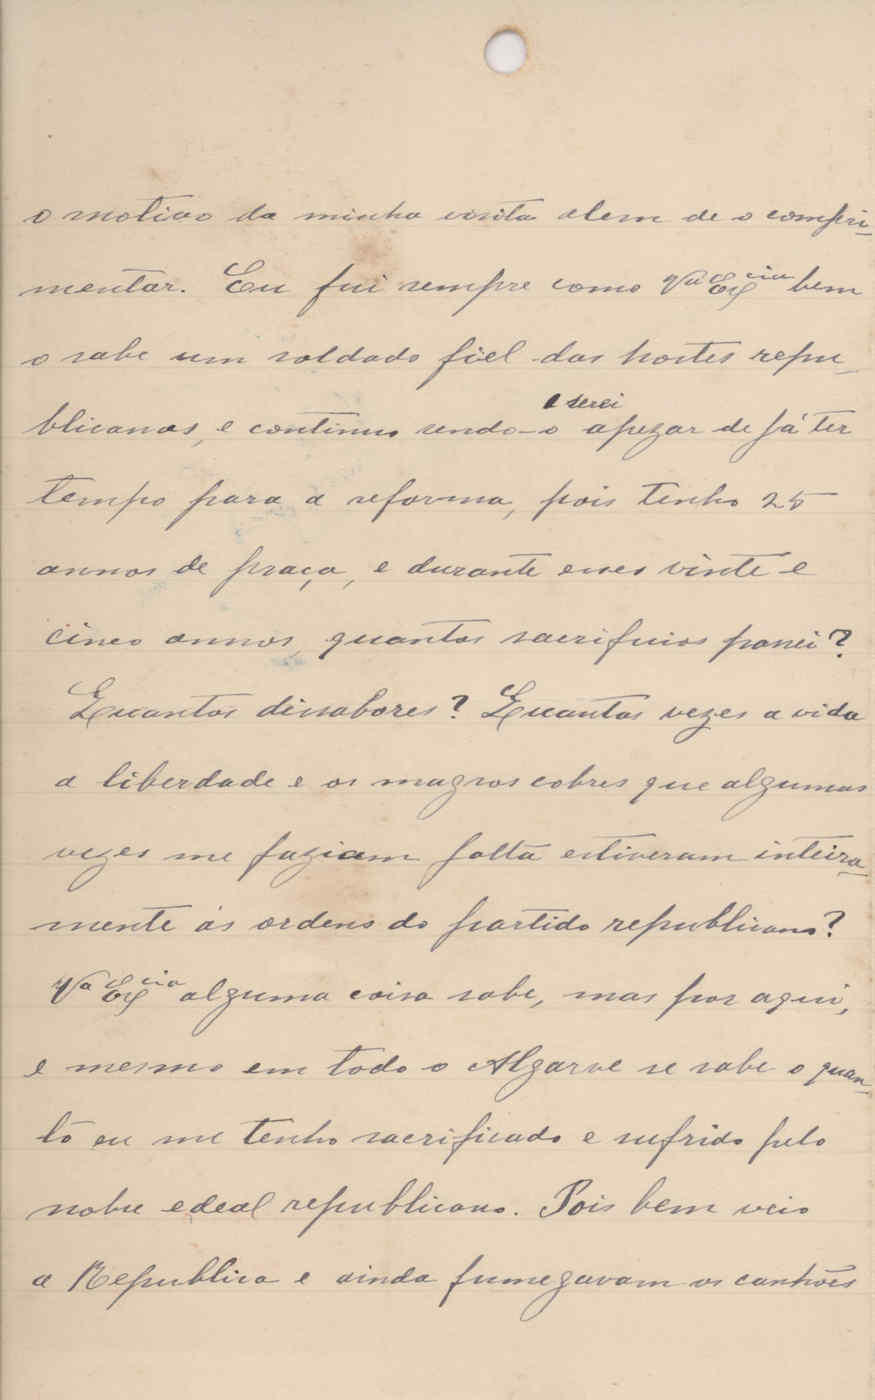 o motivo da minha visita alem de o compri-
mentar. Eu fui sempre como Vª Exᶜⁱᵃ bem
o sabe um soldado fiel das hostes repu-
blicanas, e continuo sendo-o e serei apezar de já ter
tempo para a reforma, pois tenho 25
annos de praça, e durante esses vinte e
cinco annos, quantos sacrificios passei?
Quantos dissabores? Quantas vezes a vida
a liberdade e os magros cobres que algumas
vezes me faziam falta estiveram inteira-
mente ás ordens do partido republicano?
Vª Exᶜⁱᵃ alguma coisa sabe, mas por aqui,
e mesmo em todo o Algarve se sabe o quan-
to eu me tenho sacrificado e sufrido pelo
nobre edeal republicano. Pois bem veio
a Republica e ainda fumegavam os canhões